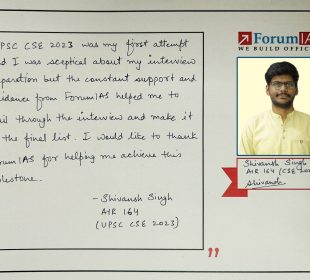 UPSC CSE 2023 was my first attempt
d I was sceptical about my interview
eparation but the constant support and
uidance from ForumIAS helped me to
il through the interview and make it
the final list. I would like to thank
rumIAS for helping me achieve this
lestone.
- Shivansh Singh
AIR 164
(UPSC CSE 2023)
ForumIA
WE BUILD OFFIC
Shivansh Singh
AIR 164 (CSE
Shivansh